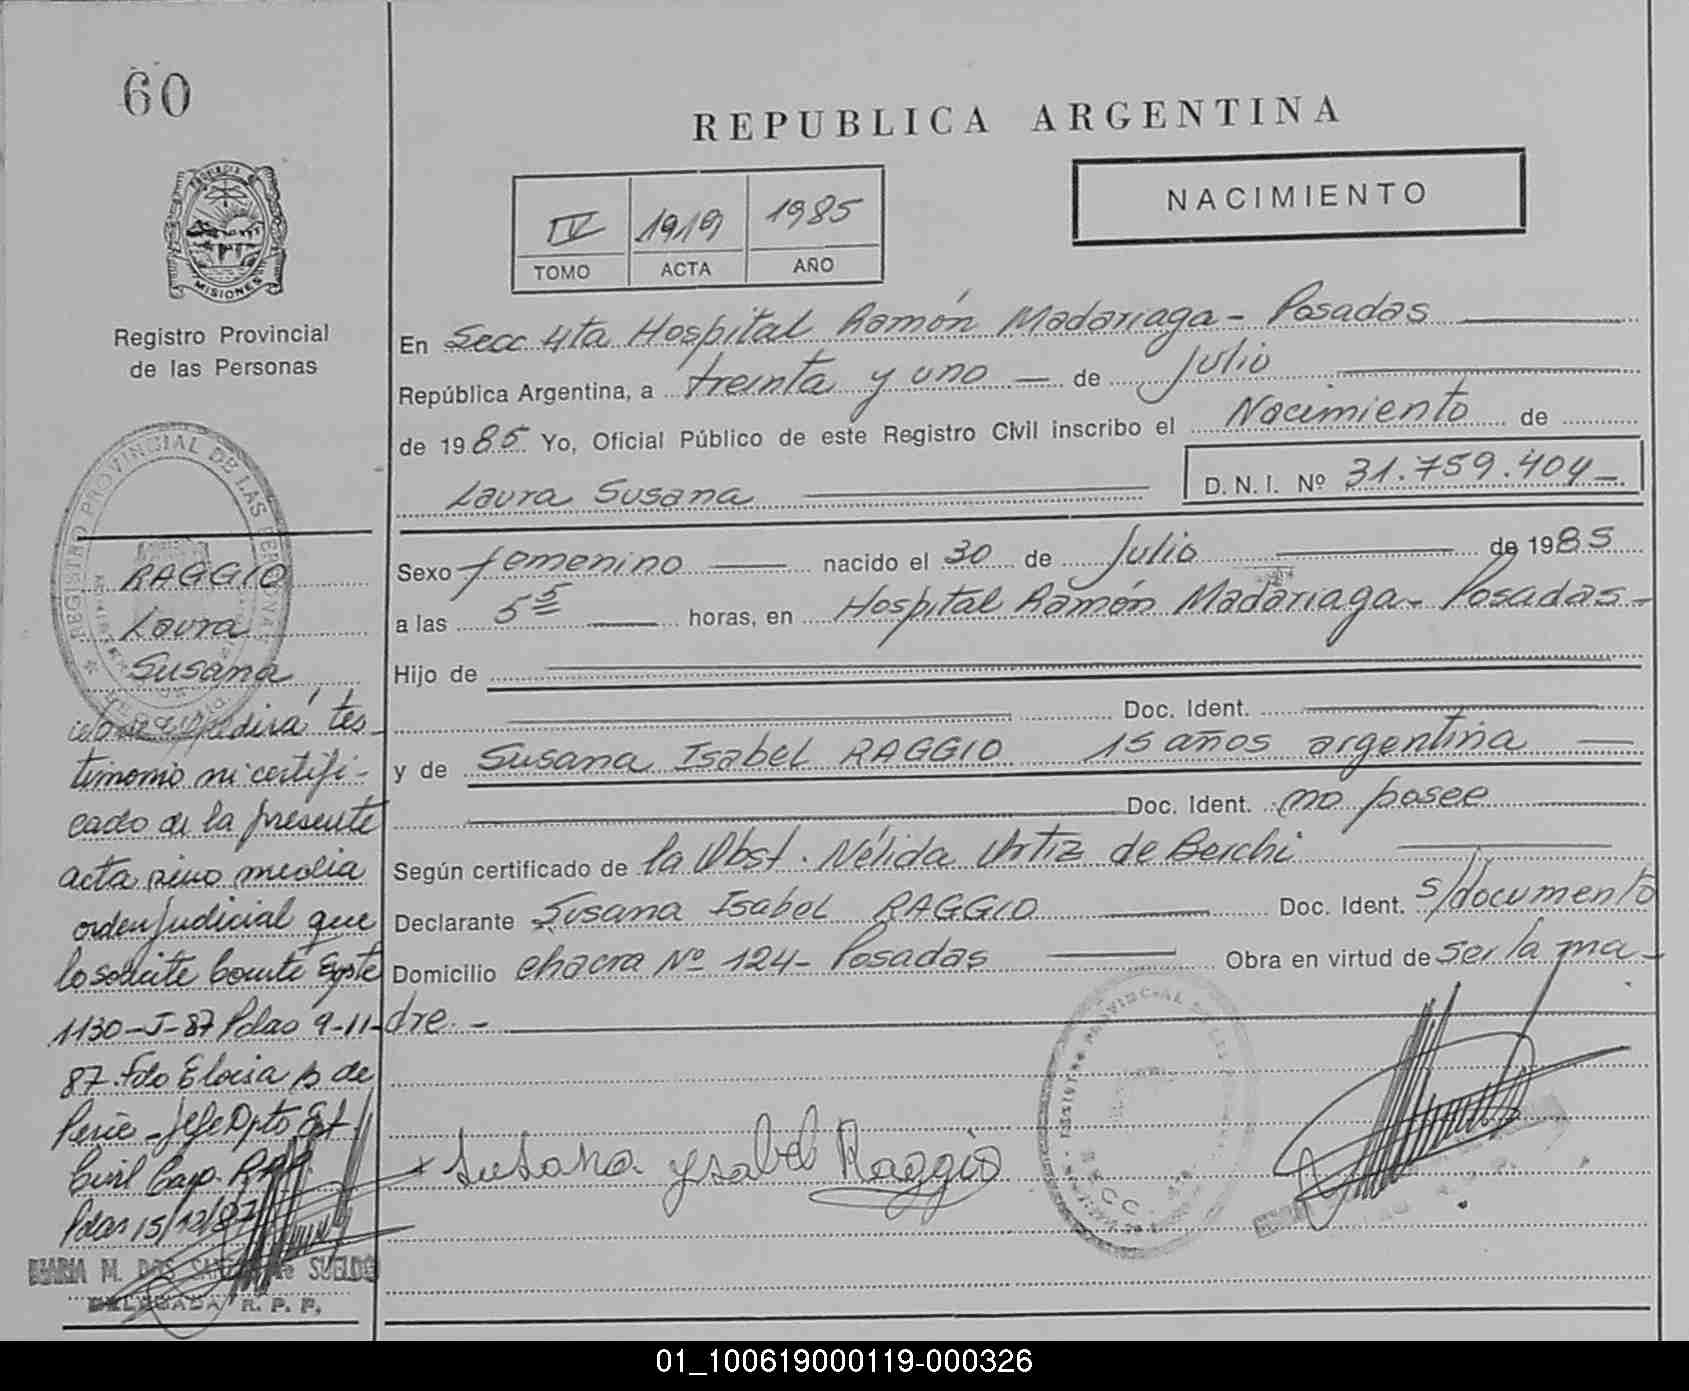 60
REPUBLICA ARGENTINA
NACIMIENTO
IV 1919 1985
TOMO ACTA AÑO
MISIONES
Registro Provincial
de las Personas
En Secc 4ta Hospital Ramón Madariaga - Posadas
República Argentina, a treinta y uno — de Julio
de 1985 Yo, Oficial Público de este Registro Civil inscribo el Nacimiento de
Laura Susana
D. N. I. Nº 31.759.404 -
REGISTRO PROVINCIAL DE LAS PERSONAS
RAGGIO
Laura
Susana
Sexo femenino — nacido el 30 de Julio de 1985
a las 5 5 — horas, en Hospital Ramón Madariaga - Posadas -
Hijo de
Doc. Ident.
y de Susana Isabel RAGGIO 15 años argentina —
Doc. Ident. no posee
Según certificado de la Obst. Nélida Ortiz de Berchi
Declarante Susana Isabel RAGGIO — Doc. Ident. s/documento
Domicilio chacra Nº 124 - Posadas — Obra en virtud de ser la ma-
dre. -
expedirá tes-
timonio ni certifi-
cado de la presente
acta sino media
orden judicial que
lo solicite
1130-J-87 Pdas 9-11-
87. Fdo Eloisa B de
- Jefe Dpto Est.
Civil
Pdas 15/12/87
Susana Ysabel Raggio
MARIA M. DOS SANTOS de SUELDO
DELEGADA R. P. P.
01_100619000119-000326